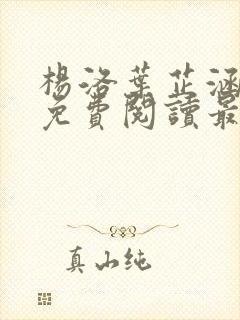 楊洛葉芷涵
免費閱讀最
真心純